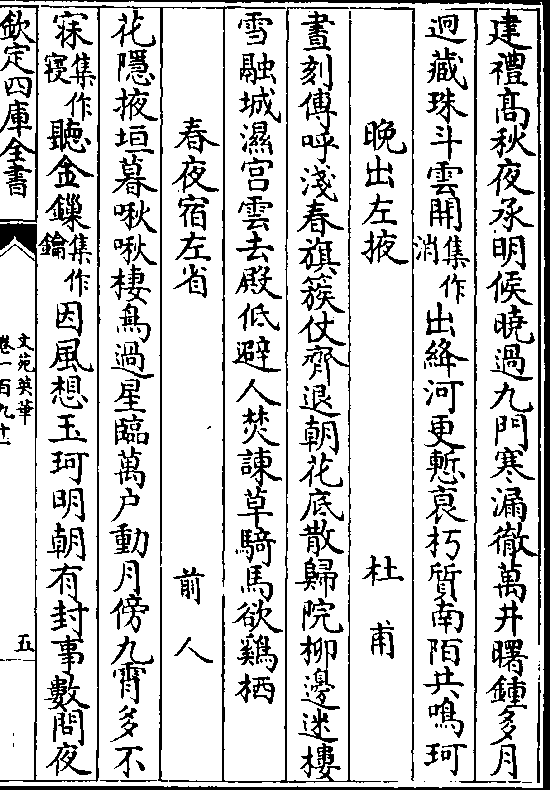 建禮髙秋夜承明候曉過九門寒漏徹萬井曙鍾多月
迥藏珠斗雲開集作消出絳河更慙衰朽質南陌共鳴珂
晚出左掖 杜甫
晝刻傅呼淺春旗簇仗齊退朝花底散歸院柳邊迷樓
雪融城濕宫雲去殿低避人焚諫草騎馬欲雞栖
春夜宿左省 前人
花隱掖垣暮啾啾棲鳥過星臨萬户動月傍九霄多不
寐集作寢聽金鏁集作鑰因風想玉珂明朝有封事數問夜
欽定四庫全書
文苑英華
卷一百九十一
五